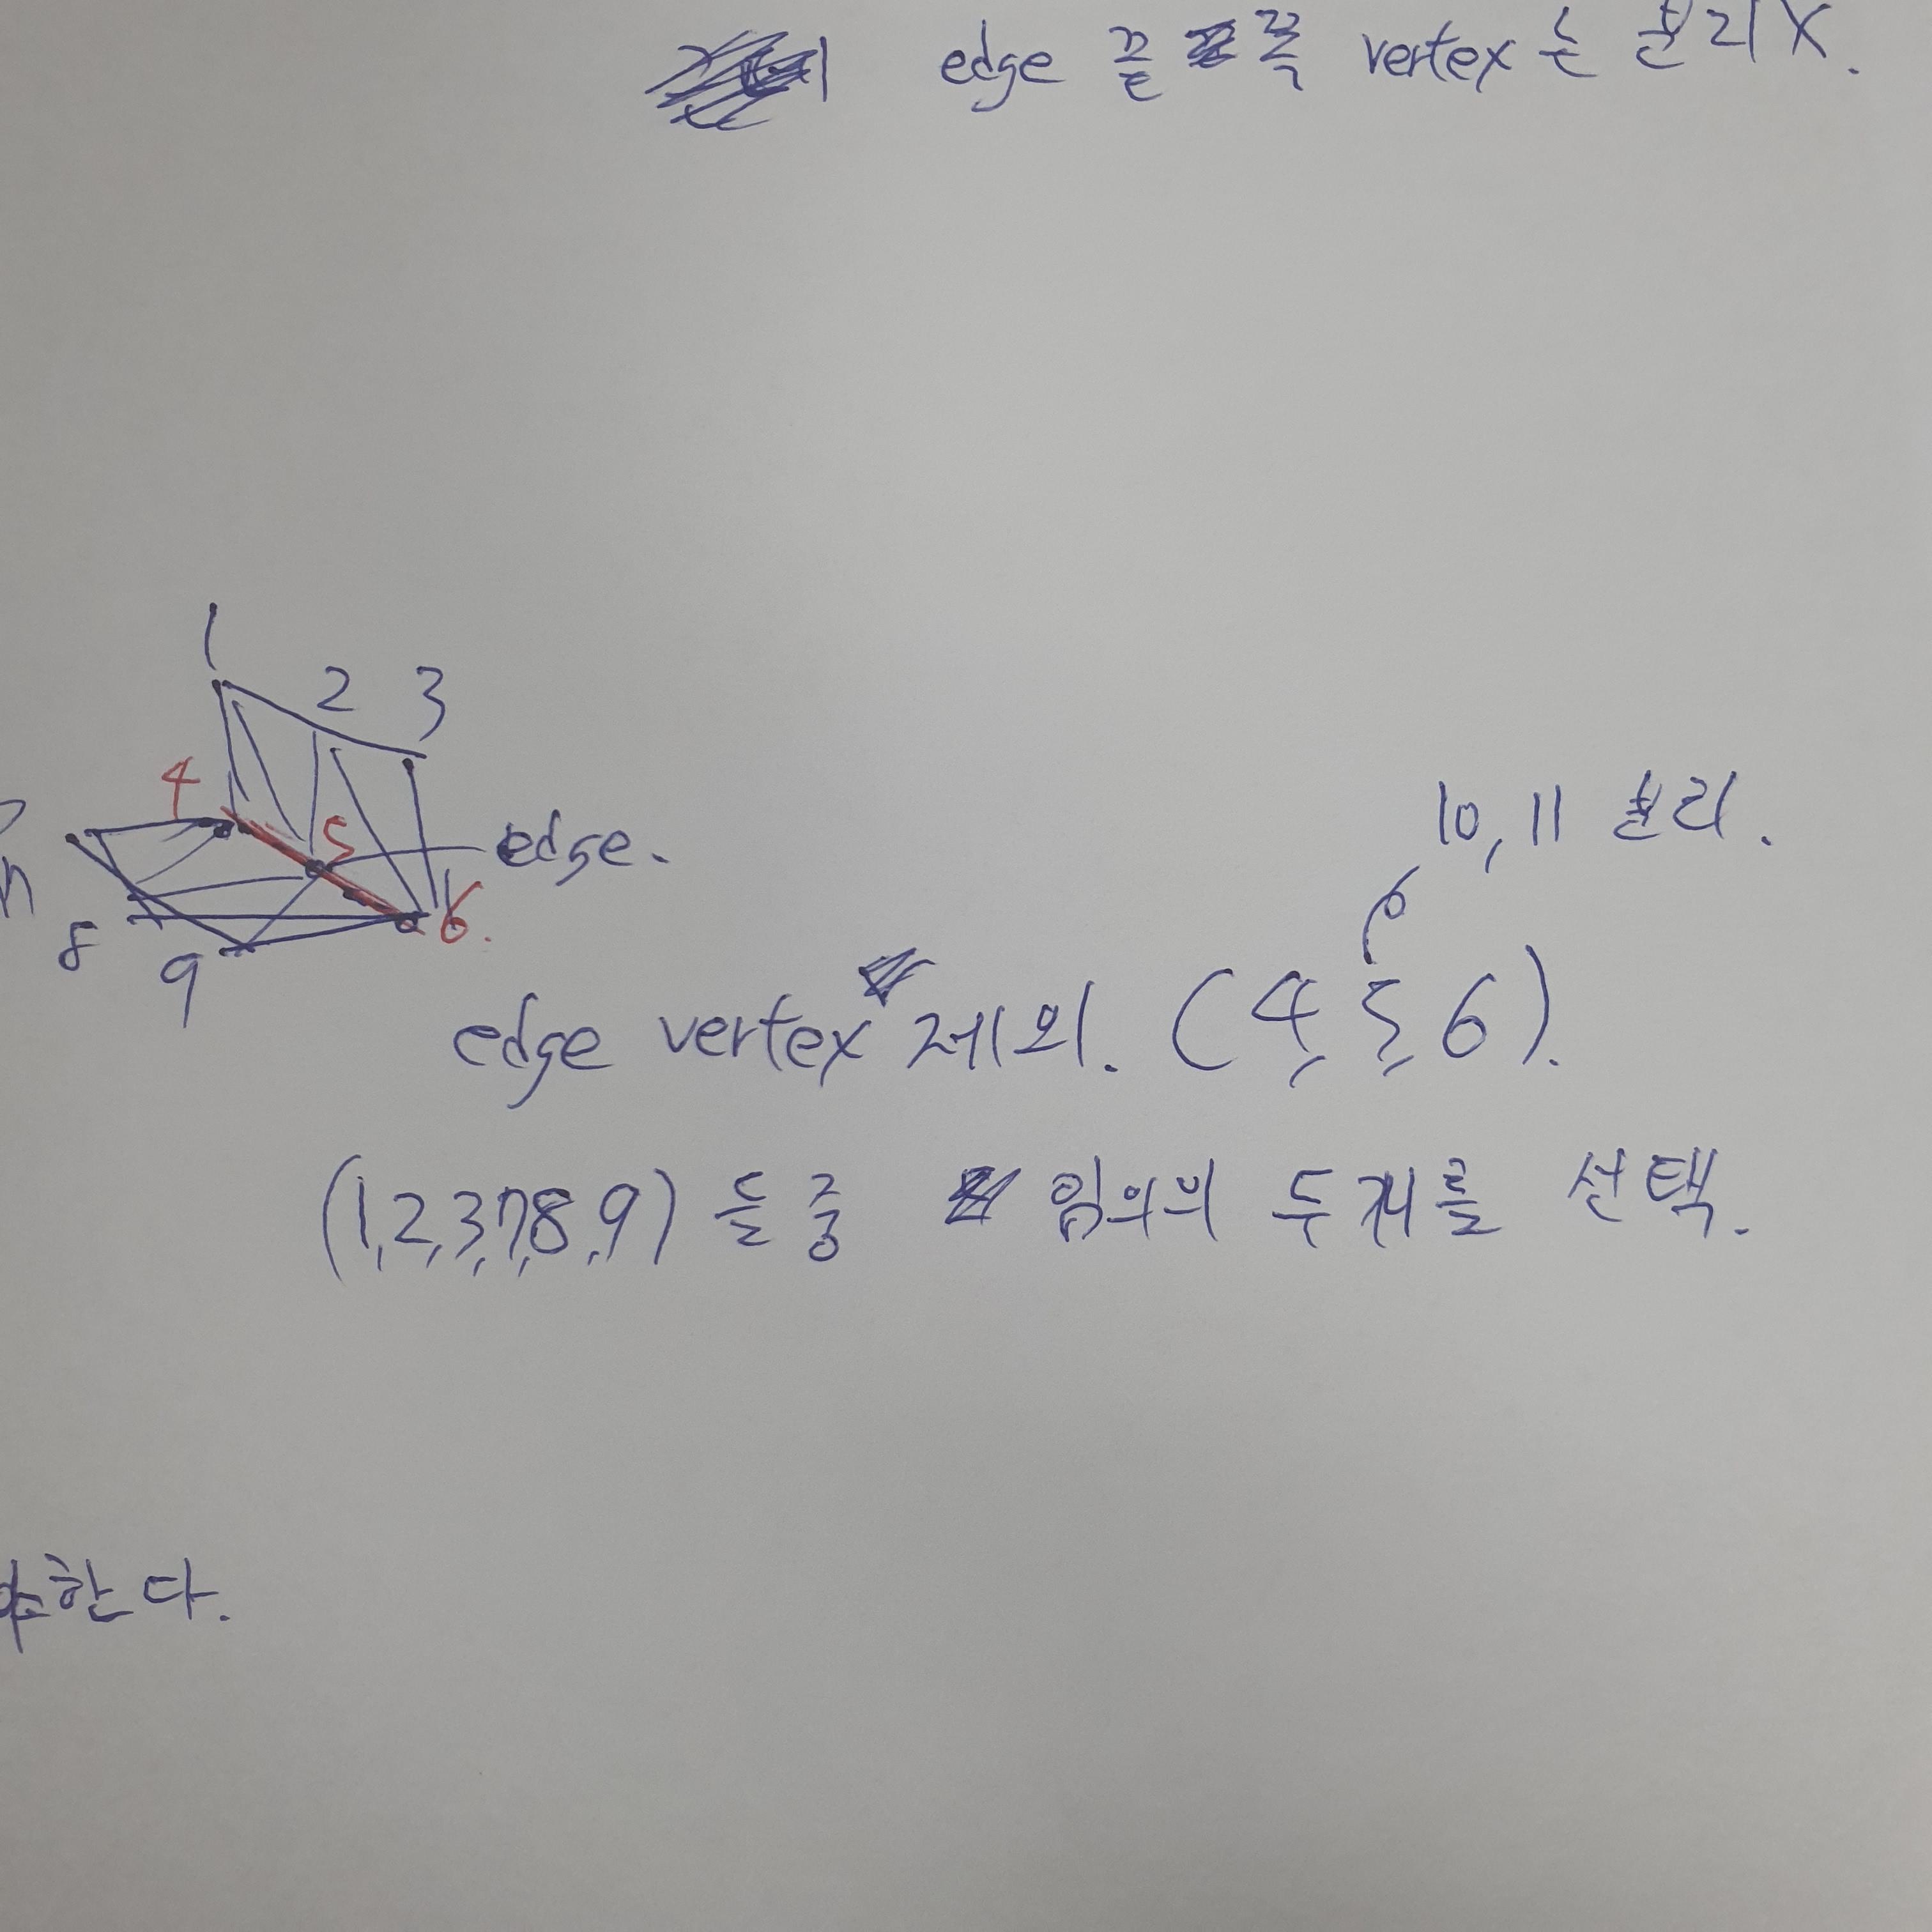 edge 끝쪽 vertex는 분리X.
1
2 3
4
5
edge.
6.
8
9
10, 11 분리.
edge vertex 제외. (4, 5, 6).
(1,2,3,7,8,9) 들 중 임의의 두개를 선택.
야한다.